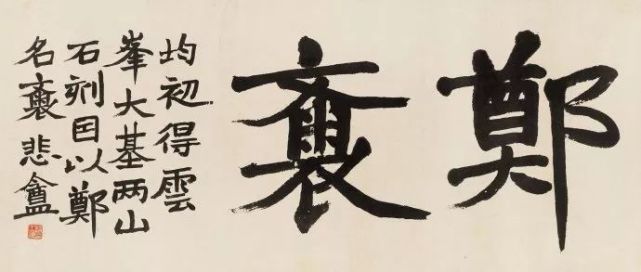 鄭齋
均初得雲
峯大基两山
石刻因以鄭
名齋悲盦